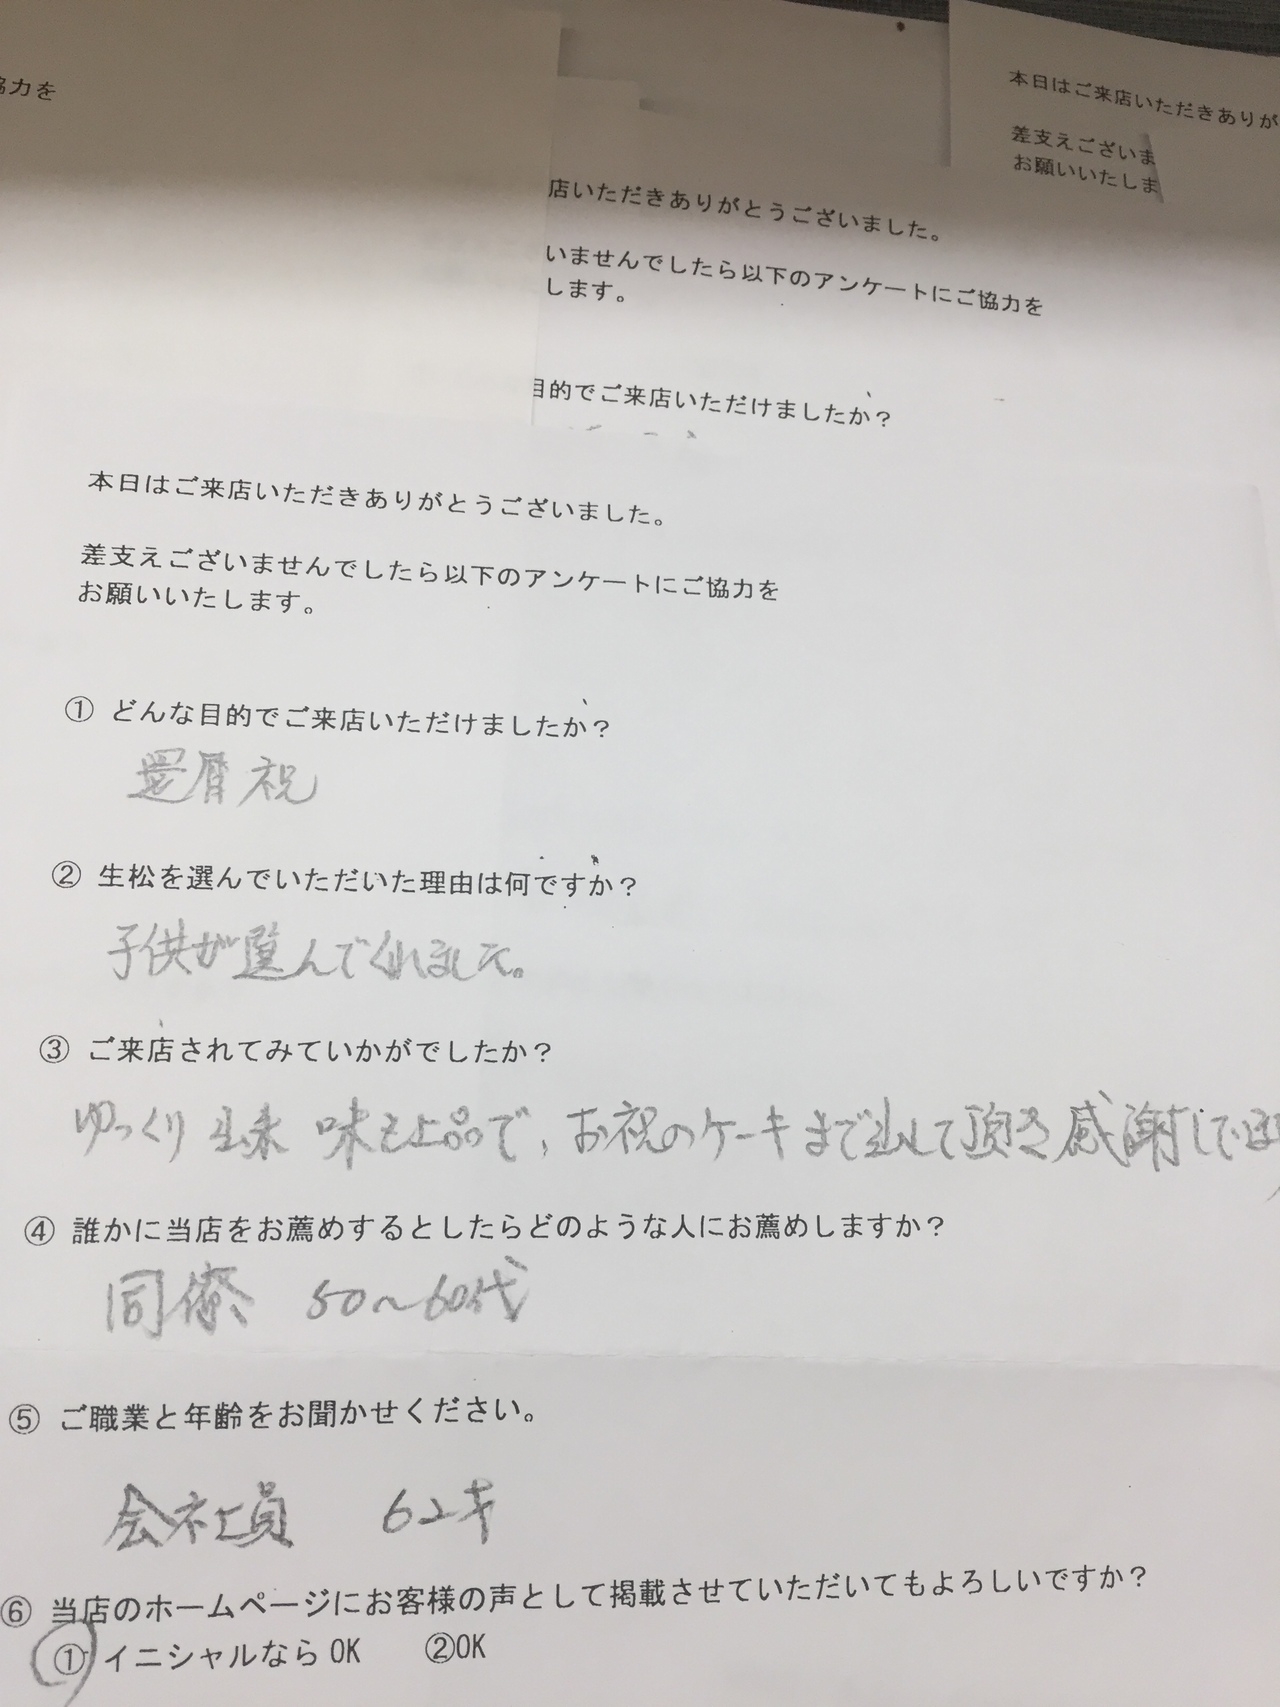 協力を
本日はご来店いただきありが
差支えございま
お願いいたしま
店いただきありがとうございました。
いませんでしたら以下のアンケートにご協力を
します。
目的でご来店いただけましたか？
本日はご来店いただきありがとうございました。
差支えございませんでしたら以下のアンケートにご協力を
お願いいたします。
① どんな目的でご来店いただけましたか？
還暦祝
② 生松を選んでいただいた理由は何ですか？
子供が選んでくれました。
③ ご来店されてみていかがでしたか？
ゆっくり出来 味も上品で、お祝のケーキまで出して頂き感謝して
④ 誰かに当店をお薦めするとしたらどのような人にお薦めしますか？
同僚 50～60代
⑤ ご職業と年齢をお聞かせください。
会社員 62才
⑥ 当店のホームページにお客様の声として掲載させていただいてもよろしいですか？
① イニシャルなら OK ②OK